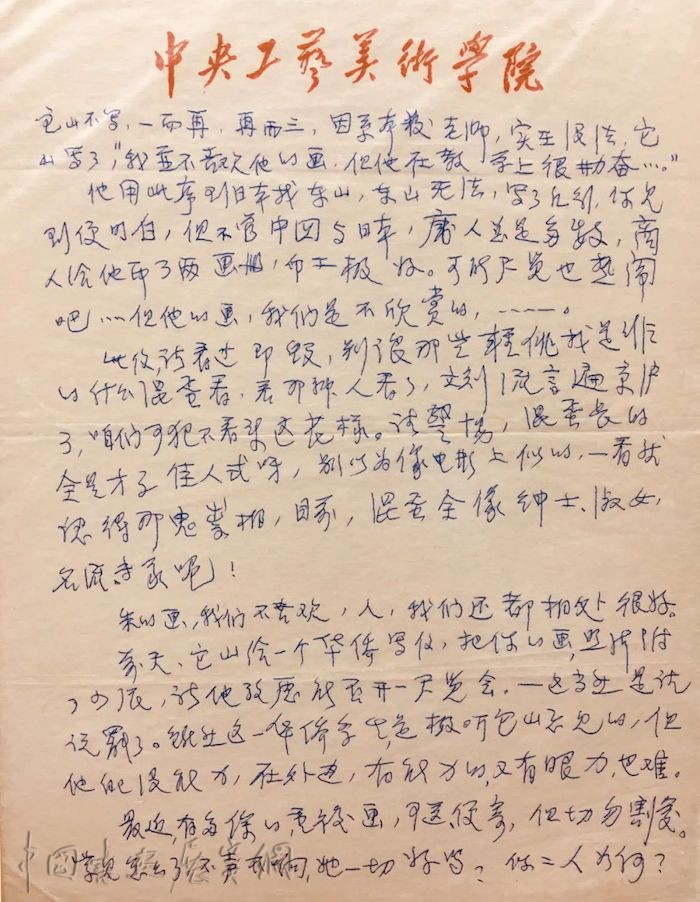 中央工藝美術學院
它山不写，一而再，再而三，因系本校老师，实在没法，它
山写了"我并不喜欢他的画，但他在教学上很勤奋……"
他用此序到日本找东山，东山无法，写了几行，你见
到便明白，但不管中国与日本，庸人总是多数，商
人给他印了两画册，印工极好。可能展览也热闹
吧……但他的画，我们是不欣赏的，……。
此信请看过即毁，别让那些轻佻
的什么混蛋看，若那种人看了，立刻流言遍京沪
了，咱们可犯不着来这花样。请警惕，混蛋长的
全是才子佳人式呀，别以为像电影上似的，一看就
认得那鬼祟相，目前，混蛋全像绅士、淑女，
名流专家呢！
朱的画，我们不喜欢，人，我们还都相处很好。
前天，它山给一个华侨写信，把你的画照片附
了几张，请他考虑能否开一展览会。——这当然是说
说罢了。虽然这一华侨学生是极听它山意见的，但
他自己没能力，在外边，有能力的又有眼力，也难。
最近，有多余的重复画，可送便寄，但切勿割爱。
怎么了不声不响，她一切好吗？你二人如何？